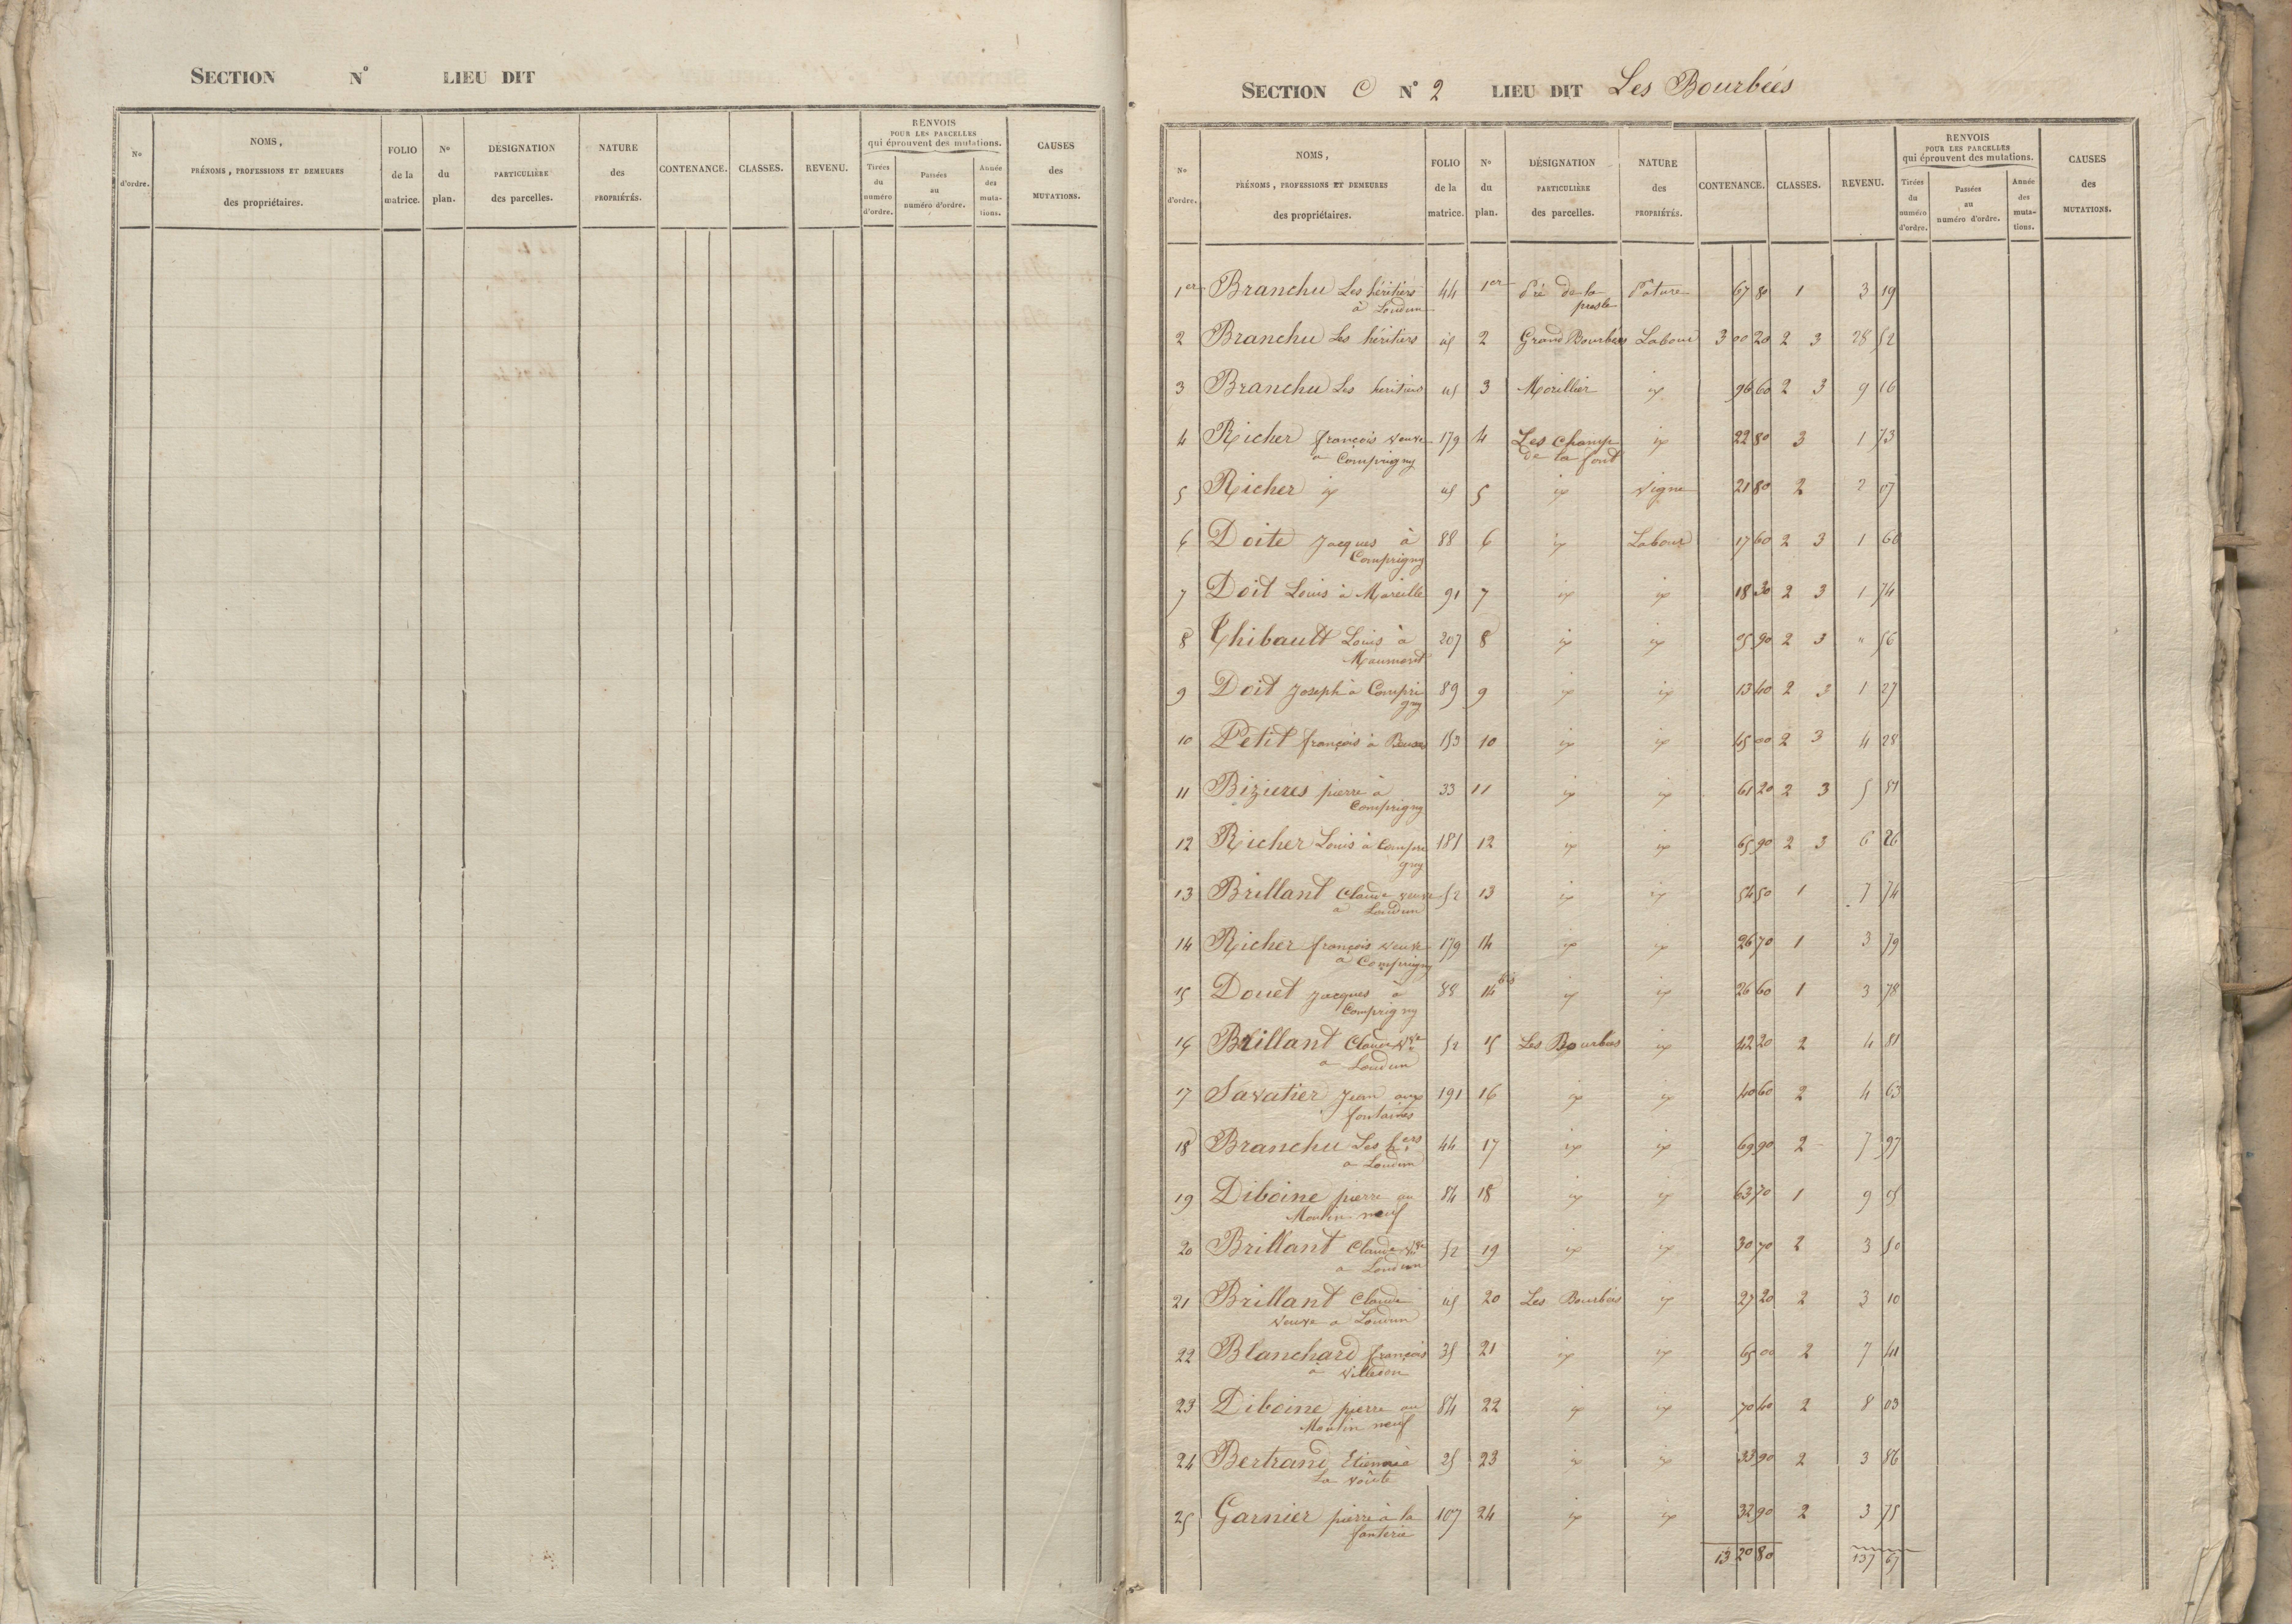 SECTION N° LIEU DIT
N° d'ordre. NOMS, PRÉNOMS, PROFESSIONS ET DEMEURES des propriétaires. FOLIO de la matrice. N° du plan. DÉSIGNATION PARTICULIÈRE des parcelles. NATURE des PROPRIÉTÉS. CONTENANCE. CLASSES. REVENU. RENVOIS POUR LES PARCELLES qui éprouvent des mutations. Tirées du numéro d'ordre. Passées au numéro d'ordre. Année des mutations. CAUSES des MUTATIONS.
SECTION C N° 2 LIEU DIT Les Bourbées
N° d'ordre. NOMS, PRÉNOMS, PROFESSIONS ET DEMEURES des propriétaires. FOLIO de la matrice. N° du plan. DÉSIGNATION PARTICULIÈRE des parcelles. NATURE des PROPRIÉTÉS. CONTENANCE. CLASSES. REVENU. RENVOIS POUR LES PARCELLES qui éprouvent des mutations. Tirées du numéro d'ordre. Passées au numéro d'ordre. Année des mutations. CAUSES des MUTATIONS.
1er Branchu Les héritiers 44 1er Pré de la Pature 67 80 1 3 19
à Loudun
2 Branchu Les héritiers id 2 Grand Bourbées Labour 3 00 20 2 3 28 52
3 Branchu Les héritiers id 3 Morillier id 96 60 2 3 9 16
4 Richer françois veuve 179 4 Les Champ id 22 80 3 1 73
a Comprigny de la font
5 Richer id id 5 id vigne 21 80 2 2 07
6 Doite Jacques à 88 6 id Labour 17 60 2 3 1 66
Comprigny
7 Doit Louis à Mareille 91 7 id id 18 30 2 3 1 74
8 Thibault Louis à 207 8 id id 05 90 2 3 " 56
Maumont
9 Doit Joseph à Compri 89 9 id id 13 40 2 3 1 27
gny
10 Petit françois à 153 10 id id 45 00 2 3 4 28
11 Bizieres pierre à 33 11 id id 61 20 2 3 5 81
Comprigny
12 Richer Louis à Compri 181 12 id id 65 90 2 3 6 26
gny
13 Brillant Claude veuve 52 13 id id 54 50 1 7 74
a Loudun
14 Richer françois veuve 179 14 id id 26 70 1 3 79
à Comprigny
15 Douet Jacques à 88 14 bis id id 26 60 1 3 78
Comprigny
16 Brillant Claude Vve 52 15 Les Bourbées id 42 20 2 4 81
a Loudun
17 Savatier Jean aux 191 16 id id 40 60 2 4 63
fontaines
18 Branchu Les hers 44 17 id id 69 90 2 7 97
a Loudun
19 Diboine pierre au 84 18 id id 63 70 1 9 05
Moulin neuf
20 Brillant Claude Vve 52 19 id id 30 70 2 3 50
a Loudun
21 Brillant Claude id 20 Les Bourbées id 27 20 2 3 10
veuve a Loudun
22 Blanchard françois 35 21 id id 65 00 2 7 41
à
23 Diboine pierre au 84 22 id id 70 40 2 8 03
Moulin neuf
24 Bertrand Etienne à 25 23 id id 33 90 2 3 86
La voûte
25 Garnier pierre à la 107 24 id id 32 90 2 3 75
fanterie
13 20 80 137 67